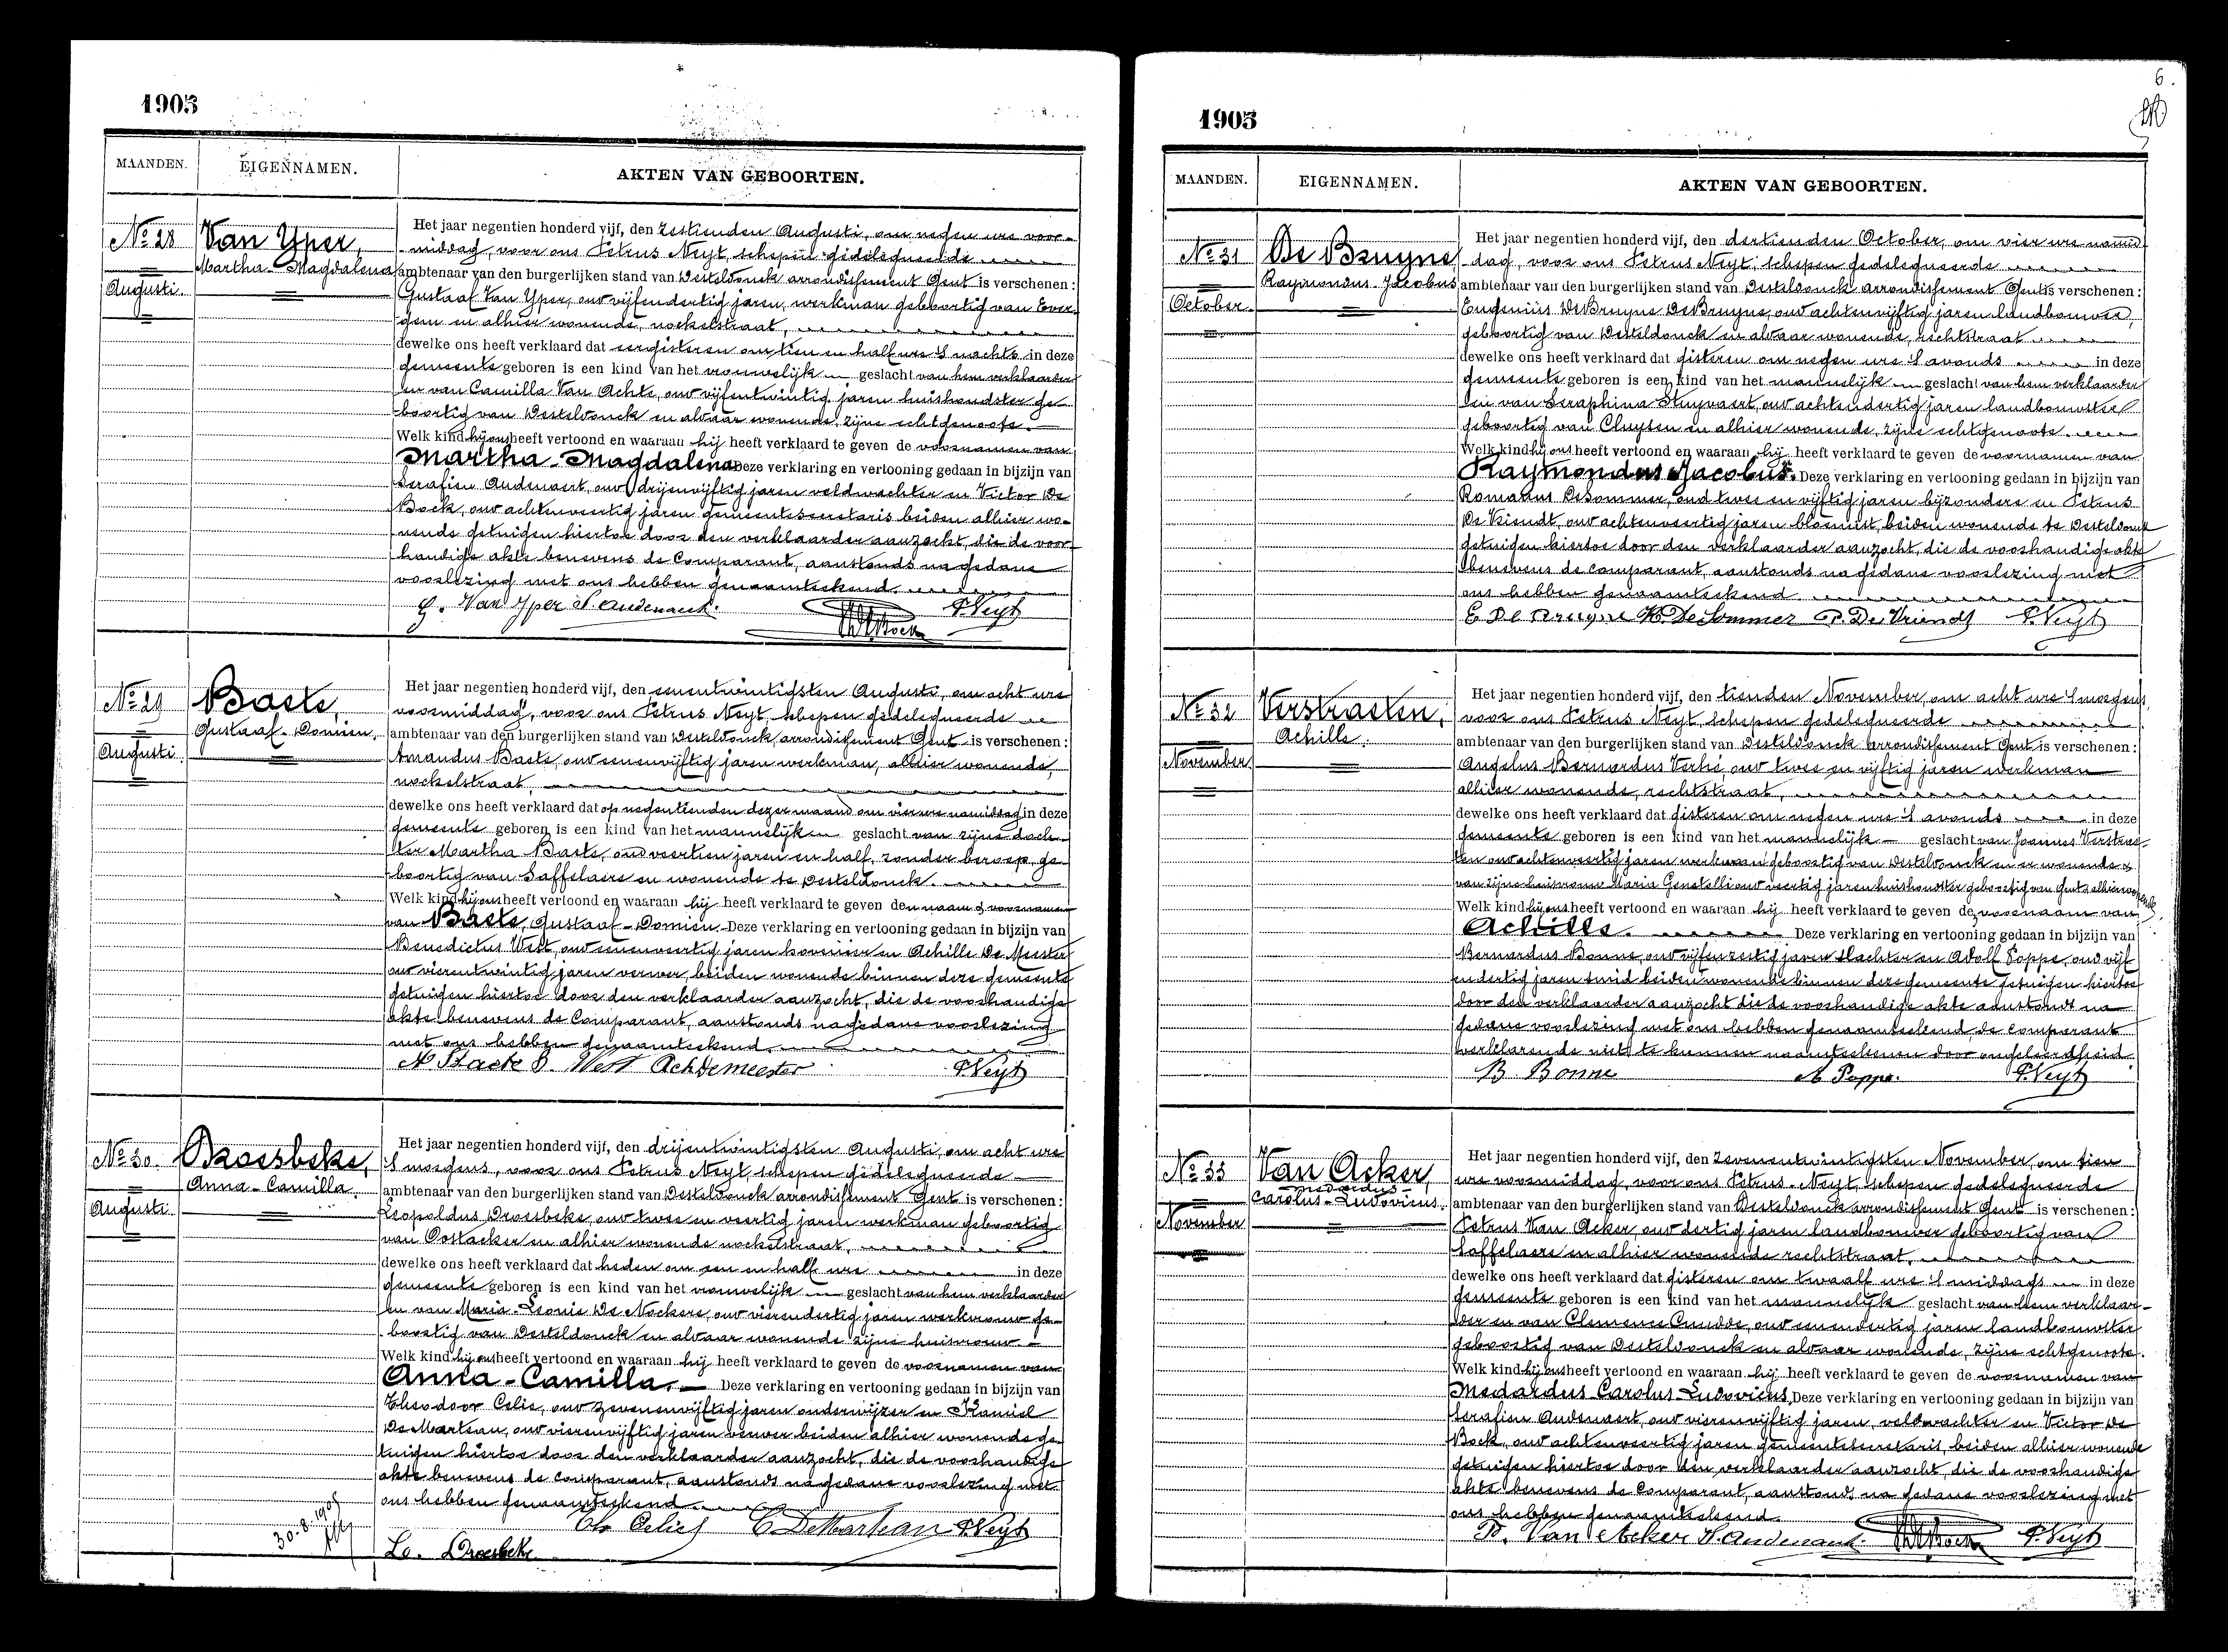 1905
MAANDEN.
EIGENNAMEN.
AKTEN VAN GEBOORTEN.
No 28
Augusti
Van Yper,
Martha-Magdalena
Het jaar negentien honderd vijf, den zestienden Augusti, om negen ure voor-
middag, voor ons Petrus Neyt, schepen gedelegueerde
ambtenaar van den burgerlijken stand van Desteldonck arrondissement Gent is verschenen:
Gustaaf Van Yper, oud vijfendertig jaren, werkman geboortig van Ever-
gem en alhier wonende, nockelstraat,
dewelke ons heeft verklaard dat eergisteren om tien en half ure 's nachts in deze
gemeente geboren is een kind van het vrouwelijk geslacht van hem verklaarder
en van Camilla Van Achte, oud vijfentwintig jaren huishoudster ge-
boortig van Desteldonck en aldaar wonende, zijne echtgenoote.
Welk kind hij ons heeft vertoond en waaraan hij heeft verklaard te geven de voornamen van
Martha-Magdalena Deze verklaring en vertooning gedaan in bijzijn van
Serafien Audenaert, oud drijenvijftig jaren veldwachter en Victor De
Bock, oud achtenveertig jaren gemeentesecretaris beiden alhier wo-
nende getuigen hiertoe door den verklaarder aanzocht, die de voor-
handige akte benevens de Comparant, aanstonds na gedane
voorlezing met ons hebben genaamteekend.
G. Van Yper S. Audenaert. P. Neyt
No 29
Augusti
Baete,
Gustaaf-Domien.
Het jaar negentien honderd vijf, den eenentwintigsten Augusti, om acht ure
voormiddag, voor ons Petrus Neyt, schepen gedelegueerde
ambtenaar van den burgerlijken stand van Desteldonck arrondissement Gent is verschenen:
Amandus Baete, oud eenenvijftig jaren werkman, alhier wonende,
nockelstraat,
dewelke ons heeft verklaard dat op negentienden dezer maand om vier ure namiddag in deze
gemeente geboren is een kind van het mannelijk geslacht van zijne doch-
ter Martha Baete, oud veertien jaren en half, zonder beroep, ge-
boortig van Saffelaere en wonende te Desteldonck.
Welk kind hij ons heeft vertoond en waaraan hij heeft verklaard te geven den naam & voornamen
van Baete, Gustaaf-Domien. Deze verklaring en vertooning gedaan in bijzijn van
Benedictus West, oud eenenveertig jaren hovenier en Achille De Meester
oud vierentwintig jaren verwer, beiden wonende binnen deze gemeente
getuigen hiertoe door den verklaarder aanzocht, die de voorhandige
akte benevens de Comparant, aanstonds na gedane voorlezing
met ons hebben genaamteekend.
A Baete B. West Ach Demeester P. Neyt
No 30
Augusti
Droesbeke,
Anna-Camilla.
Het jaar negentien honderd vijf, den drijentwintigsten Augusti, om acht ure
's morgens, voor ons Petrus Neyt, schepen gedelegueerde
ambtenaar van den burgerlijken stand van Desteldonck arrondissement Gent is verschenen:
Leopoldus Droesbeke, oud twee en veertig jaren werkman geboortig
van Oostacker en alhier wonende nockelstraat,
dewelke ons heeft verklaard dat heden om een en half ure in deze
gemeente geboren is een kind van het vrouwelijk geslacht van hem verklaarder
en van Maria-Leonie De Nockere, oud vierendertig jaren werkvrouw ge-
boortig van Desteldonck en aldaar wonende zijne huisvrouw.
Welk kind hij ons heeft vertoond en waaraan hij heeft verklaard te geven de voornamen van
Anna-Camilla. Deze verklaring en vertooning gedaan in bijzijn van
Theodoor Celie, oud zevenenvijftig jaren onderwijzer en Kamiel
De Marteau, oud vierenvijftig jaren verwer beiden alhier wonende ge-
tuigen hiertoe door den verklaarder aanzocht, die de voorhandige
akte benevens de comparant, aanstonds na gedane voorlezing met
ons hebben genaamteekend
Th Celie C De Marteau P. Neyt
Lo. Droesbeke
30-8-1905
6.
1905
MAANDEN.
EIGENNAMEN.
AKTEN VAN GEBOORTEN.
No 31
October
De Bruyne,
Raymondus-Jacobus
Het jaar negentien honderd vijf, den dertienden October, om vier ure namid-
dag, voor ons Petrus Neyt, schepen gedelegueerde
ambtenaar van den burgerlijken stand van Desteldonck arrondissement Gent is verschenen:
Eugenius De Bruyne De Bruyne, oud achtenvijftig jaren landbouwer,
geboortig van Desteldonck en aldaar wonende, rechtstraat
dewelke ons heeft verklaard dat gisteren om negen ure 's avonds in deze
gemeente geboren is een kind van het mannelijk geslacht van hem verklaarder
en van Seraphina Stuyvaert, oud achtendertig jaren landbouwster
geboortig van Cluysen en alhier wonende, zijne echtgenoote.
Welk kind hij ons heeft vertoond en waaraan hij heeft verklaard te geven de voornamen van
Raymondus Jacobus. Deze verklaring en vertooning gedaan in bijzijn van
Romanus De Sommer, oud twee en vijftig jaren bijzondere en Petrus
De Vriendt, oud achtenveertig jaren bloemist, beiden wonende te Desteldonck
getuigen hiertoe door den verklaarder aanzocht, die de voorhandige akte
benevens de comparant, aanstonds na gedane voorlezing met
ons hebben genaamteekend
E De Bruyne R. De Sommer P. De Vriendt P. Neyt
No 32
November
Verstraeten,
Achille.
Het jaar negentien honderd vijf, den tienden November, om acht ure 's morgens,
voor ons Petrus Neyt, schepen gedelegueerde
ambtenaar van den burgerlijken stand van Desteldonck arrondissement Gent is verschenen:
Angelus Bernardus Verhé, oud twee en vijftig jaren werkman
alhier wonende, rechtstraat,
dewelke ons heeft verklaard dat gisteren om negen ure 's avonds in deze
gemeente geboren is een kind van het mannelijk geslacht van Joannes Verstrae-
ten oud achtenveertig jaren werkman geboortig van Desteldonck en er wonende &
van zijne huisvrouw Maria Genetelli oud veertig jaren huishoudster geboortig van Gent alhier wonende
Welk kind hij ons heeft vertoond en waaraan hij heeft verklaard te geven de voornaam van
Achille. Deze verklaring en vertooning gedaan in bijzijn van
Bernardus Bonne, oud vijfenzestig jaren slachter en Adolf Poppe, oud vijf
endertig jaren smid beiden wonende binnen deze gemeente getuigen hiertoe
door den verklaarder aanzocht die de voorhandige akte aanstonds na
gedane voorlezing met ons hebben genaamteekend, de comparant
verklarende niet te kunnen naamteekenen door ongeleerdheid.
B. Bonne A Poppe. P. Neyt
No 33
November
Van Acker,
Medardus
Carolus-Ludovicus.
Het jaar negentien honderd vijf, den zevenentwintigsten November, om tien
ure voormiddag, voor ons Petrus Neyt, schepen gedelegueerde
ambtenaar van den burgerlijken stand van Desteldonck arrondissement Gent is verschenen:
Petrus Van Acker, oud dertig jaren landbouwer geboortig van
Saffelaere en alhier wonende rechtstraat,
dewelke ons heeft verklaard dat gisteren om twaalf ure 's middags in deze
gemeente geboren is een kind van het mannelijk geslacht van hem verklaar-
der en van Clemence Cnudde, oud eenendertig jaren landbouwster
geboortig van Desteldonck en aldaar wonende, zijne echtgenoote.
Welk kind hij ons heeft vertoond en waaraan hij heeft verklaard te geven de voornamen van
Medardus Carolus-Ludovicus. Deze verklaring en vertooning gedaan in bijzijn van
Serafien Audenaert, oud vierenvijftig jaren, veldwachter en Victor De
Bock, oud achtenveertig jaren gemeentesecretaris, beiden alhier wonende
getuigen hiertoe door den verklaarder aanzocht, die de voorhandige
akte benevens de Comparant, aanstonds na gedane voorlezing met
ons hebben genaamteekend.
P. Van Acker S. Audenaert. P. Neyt